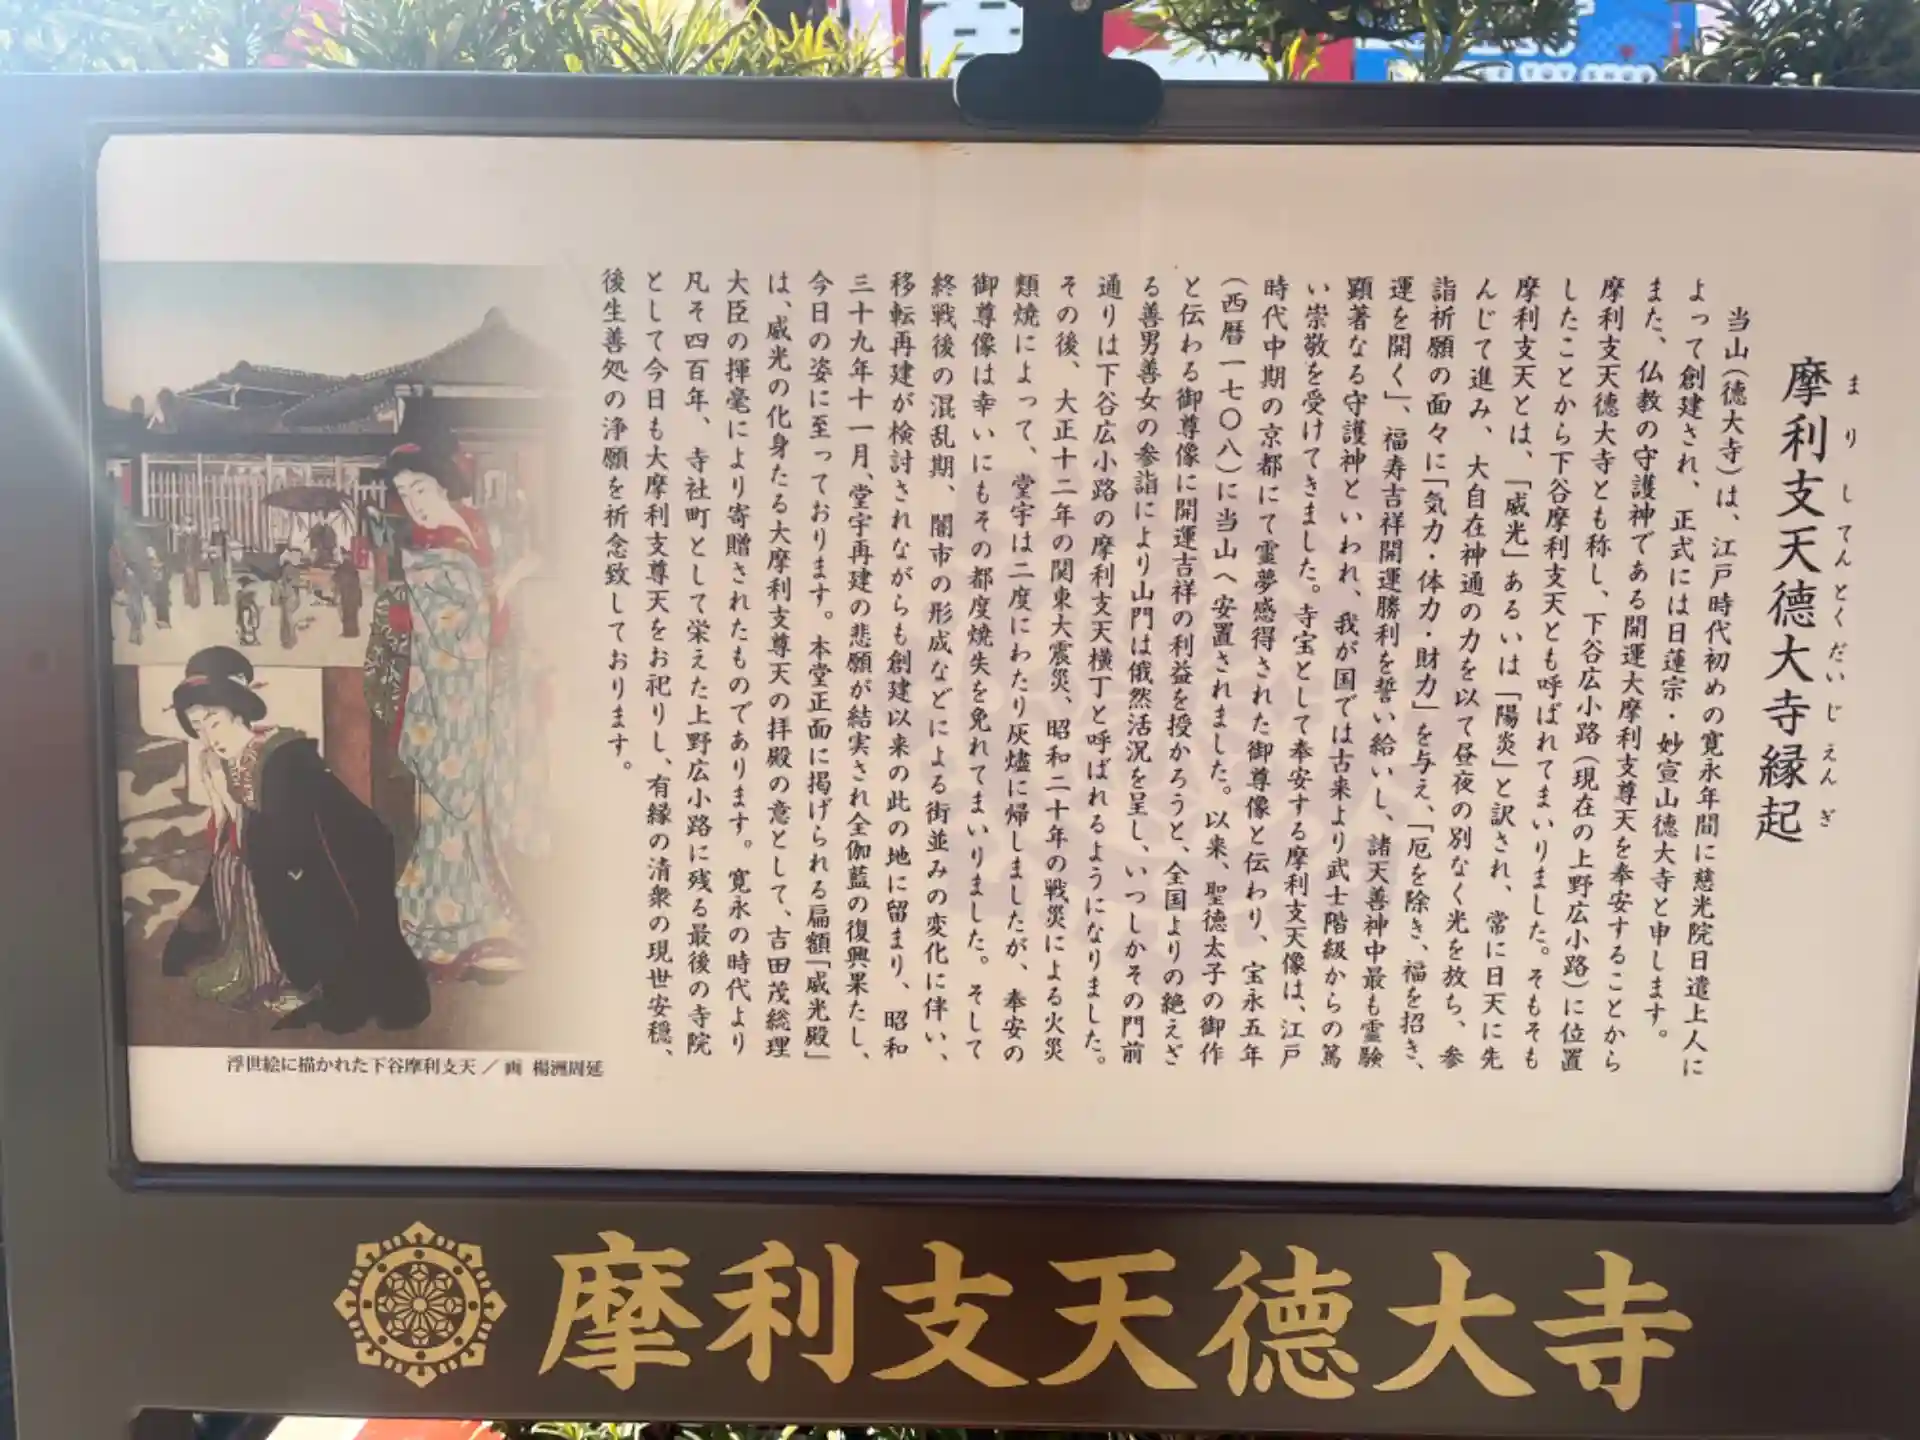 摩利支天徳大寺縁起
まりしてんとくだいじえんぎ
当山(徳大寺)は、江戸時代初めの寛永年間に慈光院日遣上人に
よって創建され、正式には日蓮宗・妙宣山徳大寺と申します。
また、仏教の守護神である開運大摩利支尊天を奉安することから
摩利支天徳大寺とも称し、下谷広小路(現在の上野広小路)に位置
したことから下谷摩利支天とも呼ばれてまいりました。そもそも
摩利支天とは、「威光」あるいは「陽炎」と訳され、常に日天に先
んじて進み、大自在神通の力を以て昼夜の別なく光を放ち、参
詣祈願の面々に「気力・体力・財力」を与え、「厄を除き、福を招き、
運を開く」、福寿吉祥開運勝利を誓い給いし、諸天善神中最も霊験
顕著なる守護神といわれ、我が国では古来より武士階級からの篤
い崇敬を受けてきました。寺宝として奉安する摩利支天像は、江戸
時代中期の京都にて霊夢感得された御尊像と伝わり、宝永五年
(西暦一七〇八)に当山へ安置されました。以来、聖徳太子の御作
と伝わる御尊像に開運吉祥の利益を授かろうと、全国よりの絶えざ
る善男善女の参詣により山門は俄然活況を呈し、いつしかその門前
通りは下谷広小路の摩利支天横丁と呼ばれるようになりました。
その後、大正十二年の関東大震災、昭和二十年の戦災による火災
類焼によって、堂宇は二度にわたり灰燼に帰しましたが、奉安の
御尊像は幸いにもその都度焼失を免れてまいりました。そして
終戦後の混乱期、闇市の形成などによる街並みの変化に伴い、
移転再建が検討されながらも創建以来の此の地に留まり、昭和
三十九年十一月、堂宇再建の悲願が結実され全伽藍の復興果たし、
今日の姿に至っております。本堂正面に掲げられる扁額「威光殿」
は、威光の化身たる大摩利支尊天の拝殿の意として、吉田茂総理
大臣の揮毫により寄贈されたものであります。寛永の時代より
凡そ四百年、寺社町として栄えた上野広小路に残る最後の寺院
として今日も大摩利支尊天をお祀りし、有縁の清衆の現世安穏、
後生善処の浄願を祈念致しております。
浮世絵に描かれた下谷摩利支天／画 楊洲周延
摩利支天徳大寺